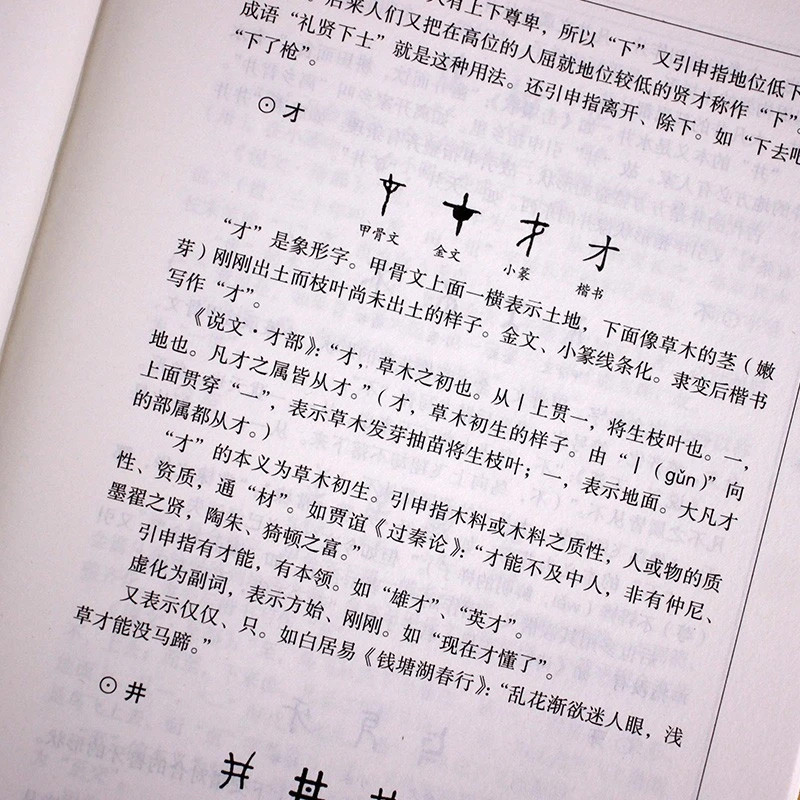 有上下尊卑，所以“下”又引申指地位低下
后来人们又把在高位的人屈就地位较低的贤才称作“下”。
成语“礼贤下士”就是这种用法。还引申指离开、除下。如“下去吧
“下了枪”。
⊙才
甲骨文 金文 小篆 楷书
“才”是象形字。甲骨文上面一横表示土地，下面像草木的茎（嫩
芽）刚刚出土而枝叶尚未出土的样子。金文、小篆线条化。隶变后楷书
写作“才”。
《说文·才部》：“才，草木之初也。从丨上贯一，将生枝叶也。一，
地也。凡才之属皆从才。”（才，草木初生的样子。由“丨（gǔn）”向
上面贯穿“一”，表示草木发芽抽苗将生枝叶；一，表示地面。大凡才
的部属都从才。）
“才”的本义为草木初生。引申指木料或木料之质性，人或物的质
性、资质，通“材”。如贾谊《过秦论》：“才能不及中人，非有仲尼、
墨翟之贤，陶朱、猗顿之富。”
引申指有才能，有本领。如“雄才”、“英才”。
虚化为副词，表示方始、刚刚。如“现在才懂了”。
又表示仅仅、只。如白居易《钱塘湖春行》：“乱花渐欲迷人眼，浅
草才能没马蹄。”
⊙井